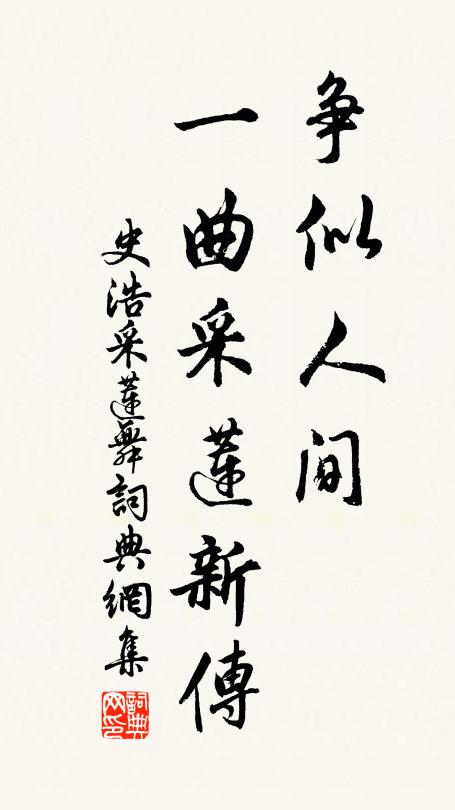 争似人间
一曲采蓮新傳
史浩采蓮舞詞典網集
詞典网印